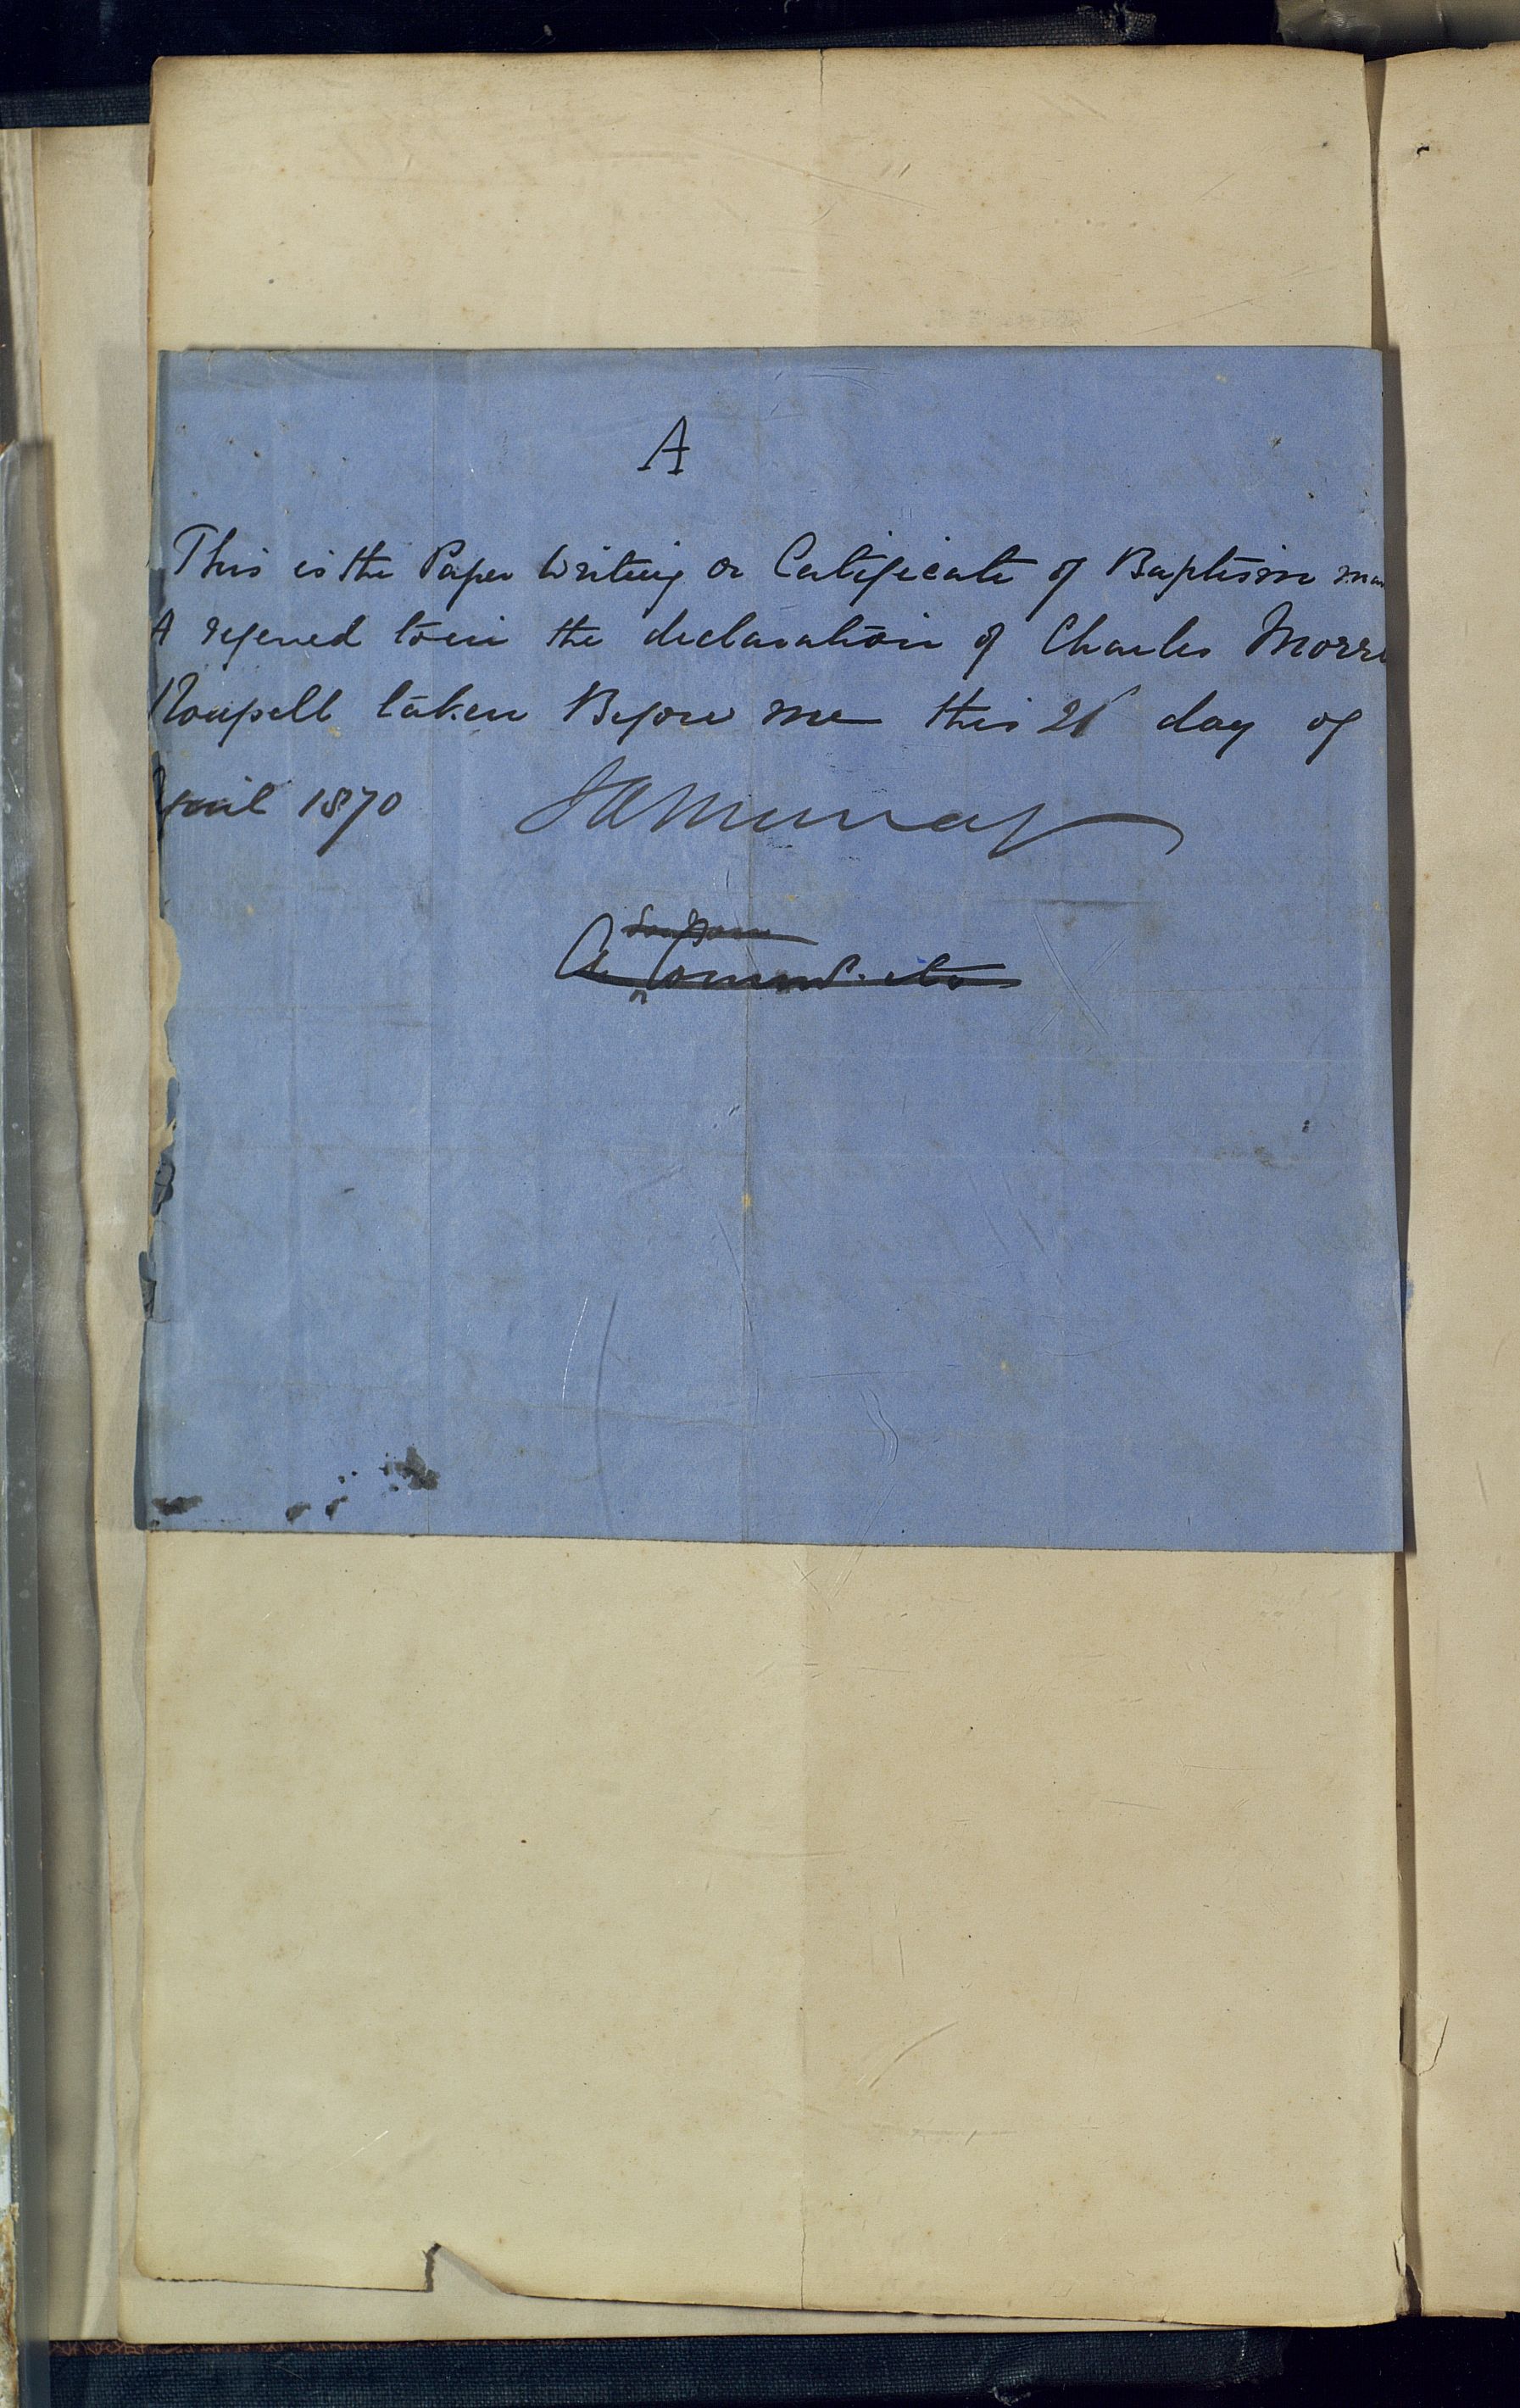 A
This is the Paper Writing or Certificate of Baptism
A referred to in the declaration of Charles Morri
Roupell taken Before me this 21 day of
April 1870
A Commr. etc